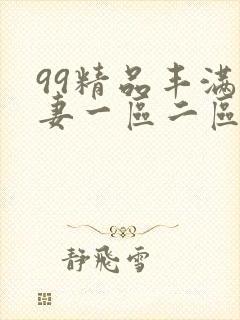 99精品丰满
妻一區二區
靜飛雪